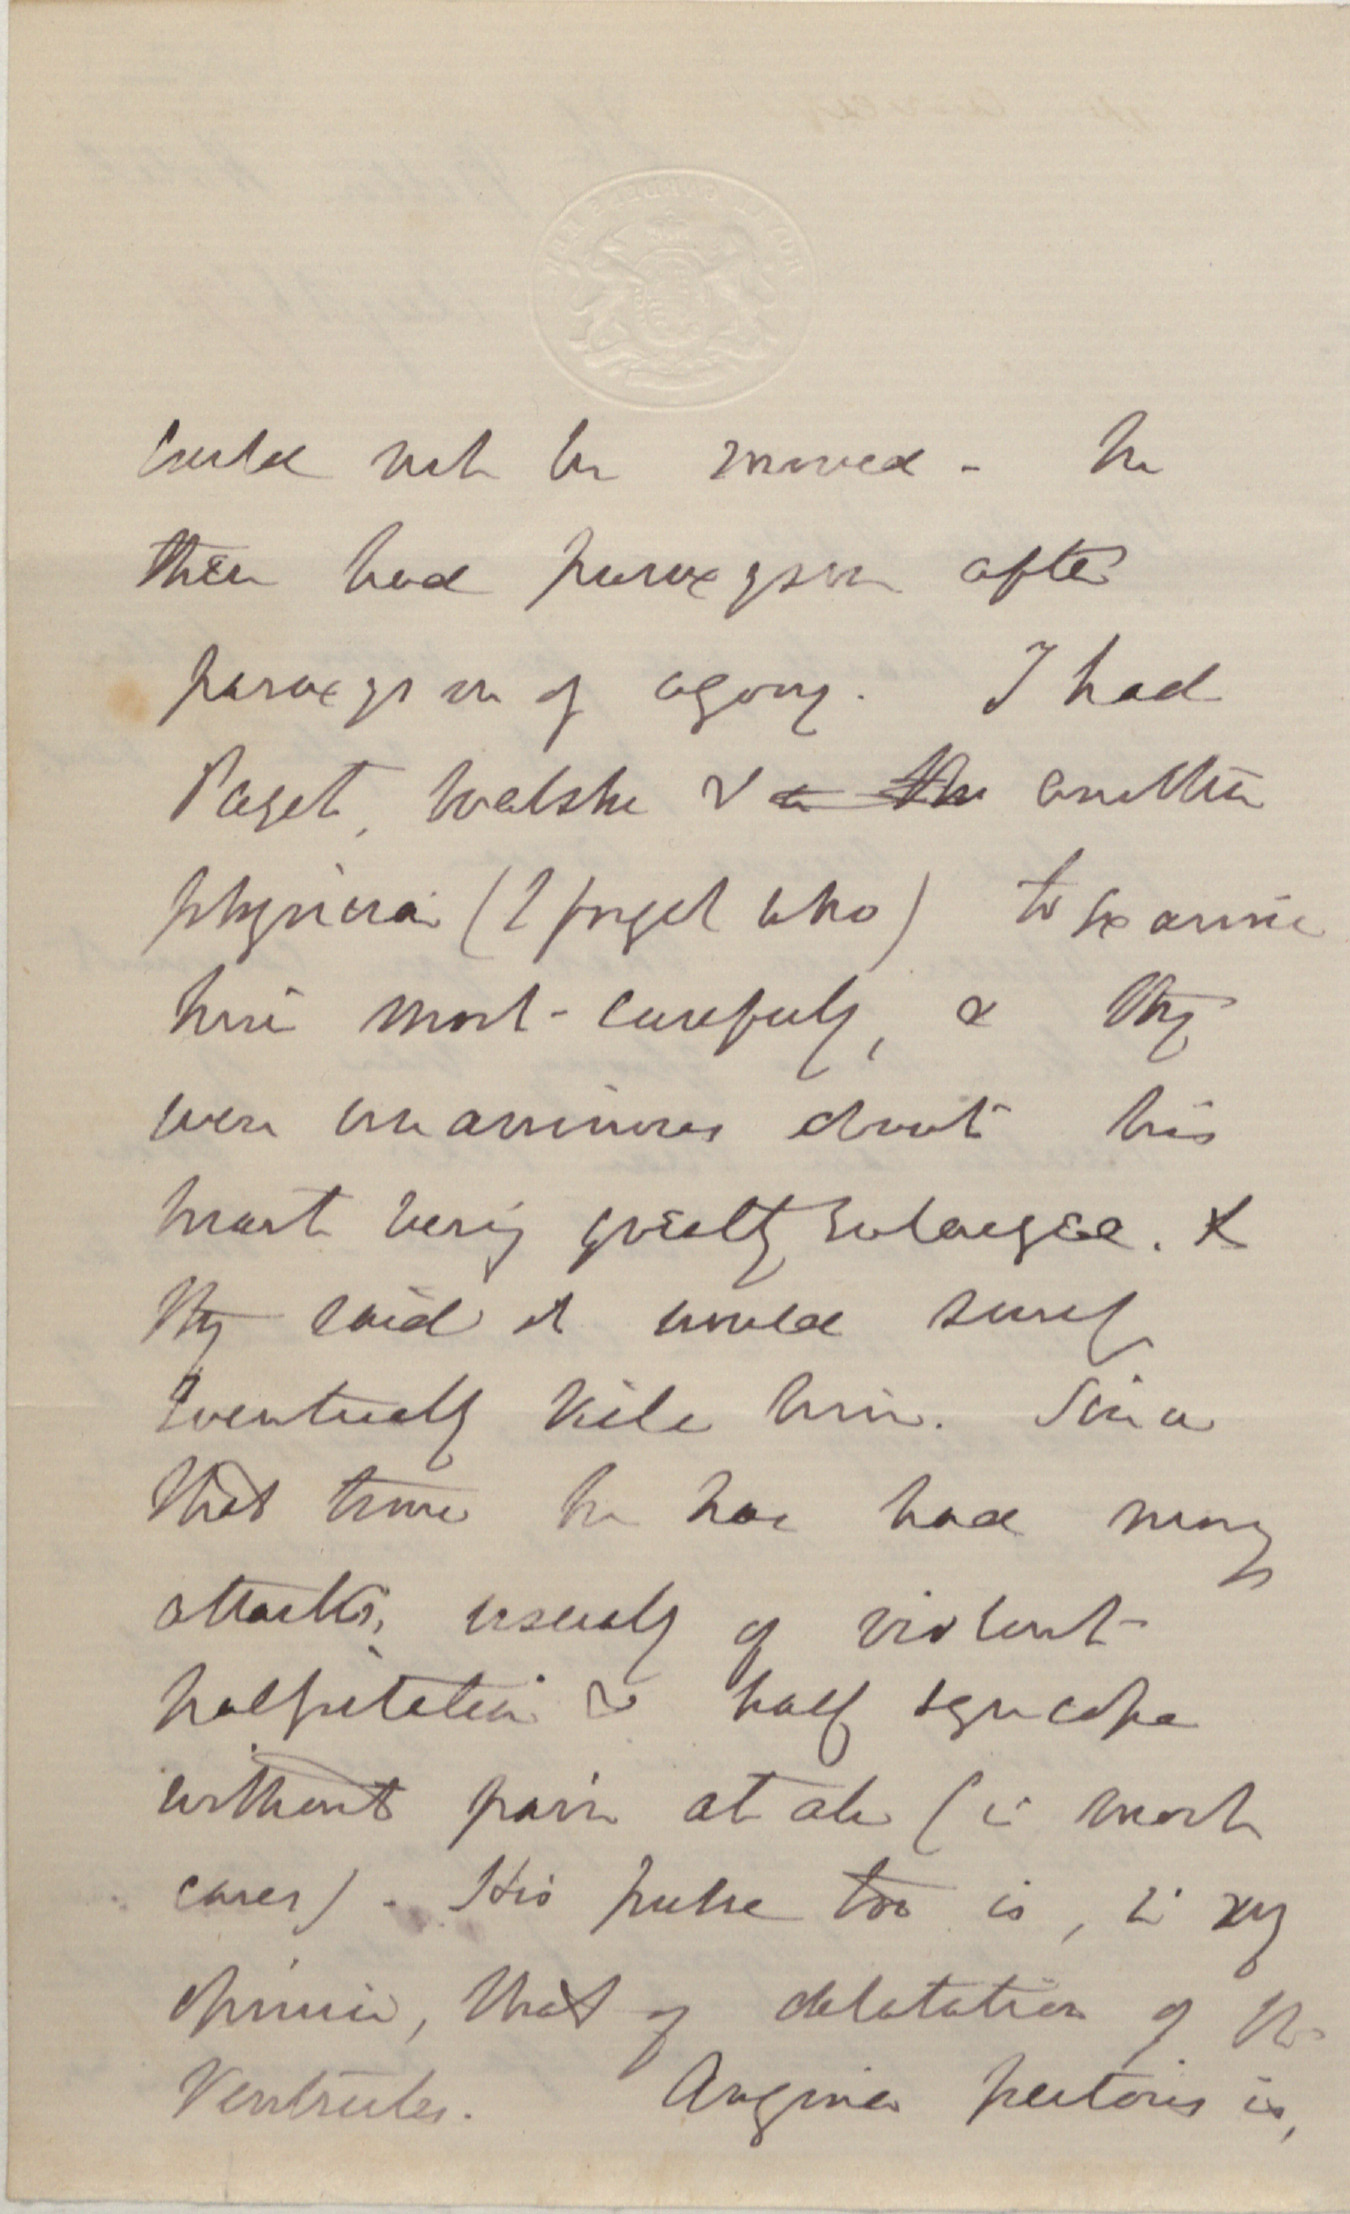 could not be moved - he
then had paroxysm after
paroxysm of agony. I had
Paget, Walshe & a the another
physician (I forget who) to examine
him most carefully, & they
were unanimous about his
heart being greatly enlarged. &
they said it would surely
eventually kill him. Since
that time he has had many
attacks, usually of violent
palpitation & half syncope
without pain at all (in most
cases) - His pulse too is, in my
opinion, that of dilatation of the
Ventricles. Angina pectoris is,